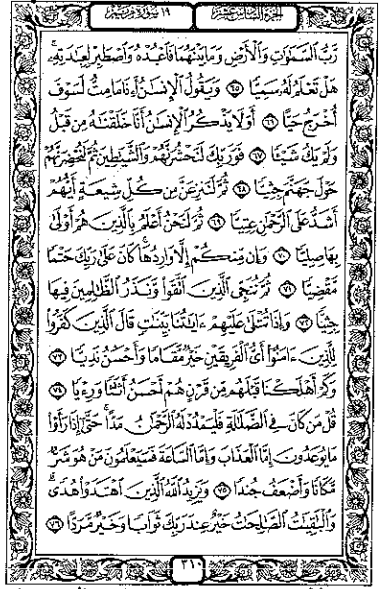 الجزء السادس عشر ١٩ سورة مريم
رَّبُّ السَّمَٰوَٰتِ وَالْأَرْضِ وَمَا بَيْنَهُمَا فَاعْبُدْهُ وَاصْطَبِرْ لِعِبَٰدَتِهِ
هَلْ تَعْلَمُ لَهُ سَمِيًّا ٦٥ وَيَقُولُ الْإِنسَٰنُ أَءِذَا مَا مِتُّ لَسَوْفَ
أُخْرَجُ حَيًّا ٦٦ أَوَلَا يَذْكُرُ الْإِنسَٰنُ أَنَّا خَلَقْنَٰهُ مِن قَبْلُ
وَلَمْ يَكُ شَيْئًا ٦٧ فَوَرَبِّكَ لَنَحْشُرَنَّهُمْ وَالشَّيَٰطِينَ ثُمَّ لَنُحْضِرَنَّهُمْ
حَوْلَ جَهَنَّمَ جِثِيًّا ٦٨ ثُمَّ لَنَنزِعَنَّ مِن كُلِّ شِيعَةٍ أَيُّهُمْ
أَشَدُّ عَلَى الرَّحْمَٰنِ عِتِيًّا ٦٩ ثُمَّ لَنَحْنُ أَعْلَمُ بِالَّذِينَ هُمْ أَوْلَىٰ
بِهَا صِلِيًّا ٧٠ وَإِن مِّنكُمْ إِلَّا وَارِدُهَا كَانَ عَلَىٰ رَبِّكَ حَتْمًا
مَّقْضِيًّا ٧١ ثُمَّ نُنَجِّي الَّذِينَ اتَّقَوا وَّنَذَرُ الظَّٰلِمِينَ فِيهَا
جِثِيًّا ٧٢ وَإِذَا تُتْلَىٰ عَلَيْهِمْ ءَايَٰتُنَا بَيِّنَٰتٍ قَالَ الَّذِينَ كَفَرُوا
لِلَّذِينَ ءَامَنُوا أَيُّ الْفَرِيقَيْنِ خَيْرٌ مَّقَامًا وَأَحْسَنُ نَدِيًّا ٧٣
وَكَمْ أَهْلَكْنَا قَبْلَهُم مِّن قَرْنٍ هُمْ أَحْسَنُ أَثَٰثًا وَرِءْيًا ٧٤
قُلْ مَن كَانَ فِي الضَّلَٰلَةِ فَلْيَمْدُدْ لَهُ الرَّحْمَٰنُ مَدًّا حَتَّىٰ إِذَا رَأَوْا
مَا يُوعَدُونَ إِمَّا الْعَذَابَ وَإِمَّا السَّاعَةَ فَسَيَعْلَمُونَ مَنْ هُوَ شَرٌّ
مَّكَانًا وَأَضْعَفُ جُندًا ٧٥ وَيَزِيدُ اللَّهُ الَّذِينَ اهْتَدَوْا هُدًى
وَالْبَٰقِيَٰتُ الصَّٰلِحَٰتُ خَيْرٌ عِندَ رَبِّكَ ثَوَابًا وَخَيْرٌ مَّرَدًّا ٧٦
٣١٠